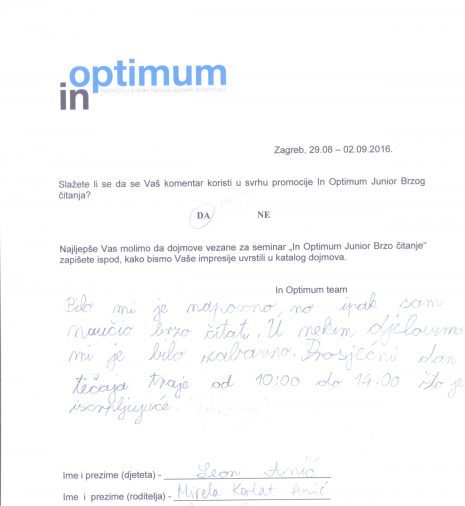 optimum
in
Zagreb, 29.08 – 02.09.2016.
Slažete li se da se Vaš komentar koristi u svrhu promocije In Optimum Junior Brzog
čitanja?
DA NE
Najljepše Vas molimo da dojmove vezane za seminar „In Optimum Junior Brzo čitanje“
zapišete ispod, kako bismo Vaše impresije uvrstili u katalog dojmova.
In Optimum team
Bilo mi je naporno, no ipak sam
naučio brzo čitat. U nekim djelovima
mi je bilo zabavno. Prosječni dan
tečaja traje od 10:00 do 14:00 što je
iscrpljujuće
Ime i prezime (djeteta) - Leon Anić
Ime i prezime (roditelja) - Mirela Karlat Anić